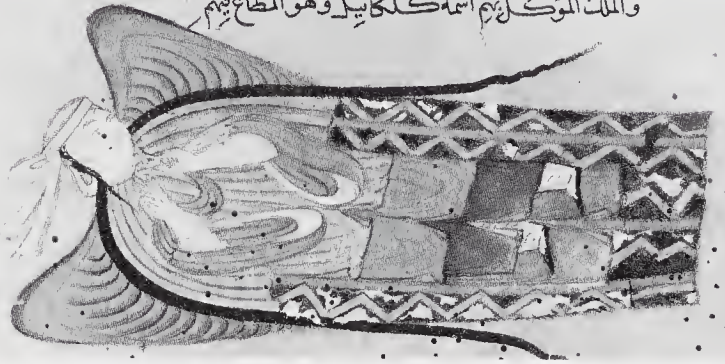 والملك الموكل بهم اسمه كلكاييل وهو المطاع فيهم